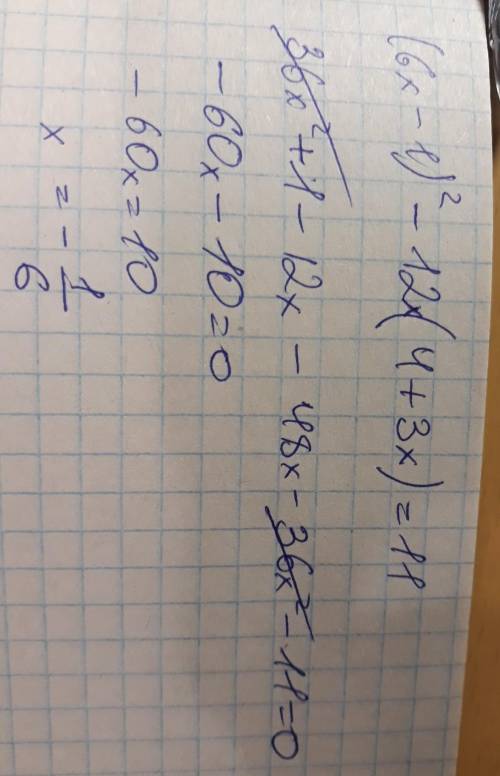 (6x - 1)² - 12x(4 + 3x) = 11
36x² + 1 - 12x - 48x - 36x² - 11 = 0
- 60x - 10 = 0
- 60x = 10
x = - 1/6